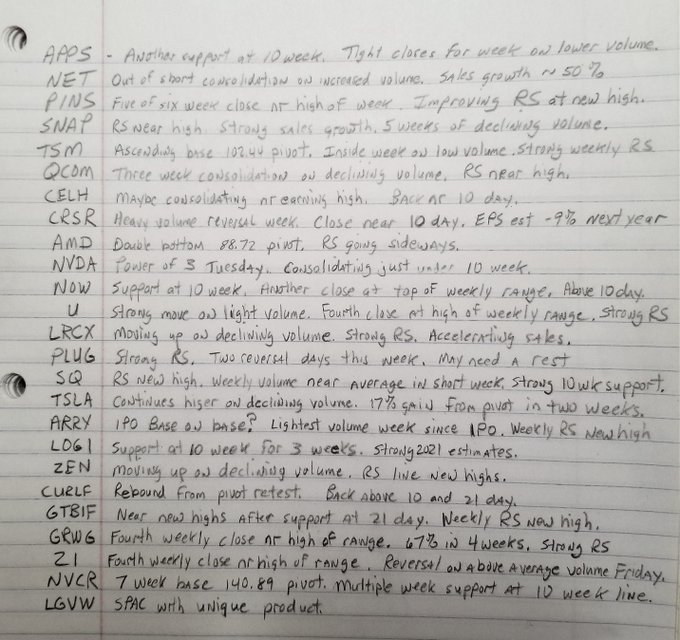 APPS - Another support at 10 week. Tight closes for week on lower volume.
NET Out of short consolidation on increased volume. Sales growth ~ 50%
PINS Five of six week close nr high of week. Improving RS at new high.
SNAP RS near high. Strong sales growth. 5 weeks of declining volume.
TSM Ascending base 102.44 pivot. Inside week on low volume. Strong weekly RS
QCOM Three week consolidation on declining volume. RS near high.
CELH Maybe consolidating nr earning high. Back nr 10 day.
CRSR Heavy volume reversal week. Close near 10 day. EPS est -9% next year
AMD Double bottom 88.72 pivot. RS going sideways.
NVDA Power of 3 Tuesday. Consolidating just under 10 week.
NOW Support at 10 week. Another close at top of weekly range. Above 10 day.
U Strong move on light volume. Fourth close at high of weekly range. Strong RS
LRCX Moving up on declining volume. Strong RS. Accelerating sales.
PLUG Strong RS. Two reversal days this week. May need a rest
SQ RS new high. Weekly volume near average in short week. Strong 10wk support.
TSLA Continues higer on declining volume. 17% gain from pivot in two weeks.
ARRY IPO Base on base? Lightest volume week since IPO. Weekly RS New high
LOGI Support at 10 week for 3 weeks. Strong 2021 estimates.
ZEN Moving up on declining volume. RS line new highs.
CURLF Rebound from pivot retest. Back above 10 and 21 day.
GTBIF Near new highs after support at 21 day. Weekly RS new high.
GRWG Fourth weekly close nr high of range. 67% in 4 weeks. Strong RS
ZI Fourth weekly close nr high of range. Reversal on above average volume Friday.
NVCR 7 week base 140.89 pivot. Multiple week support at 10 week line.
LGVW SPAC with unique product.